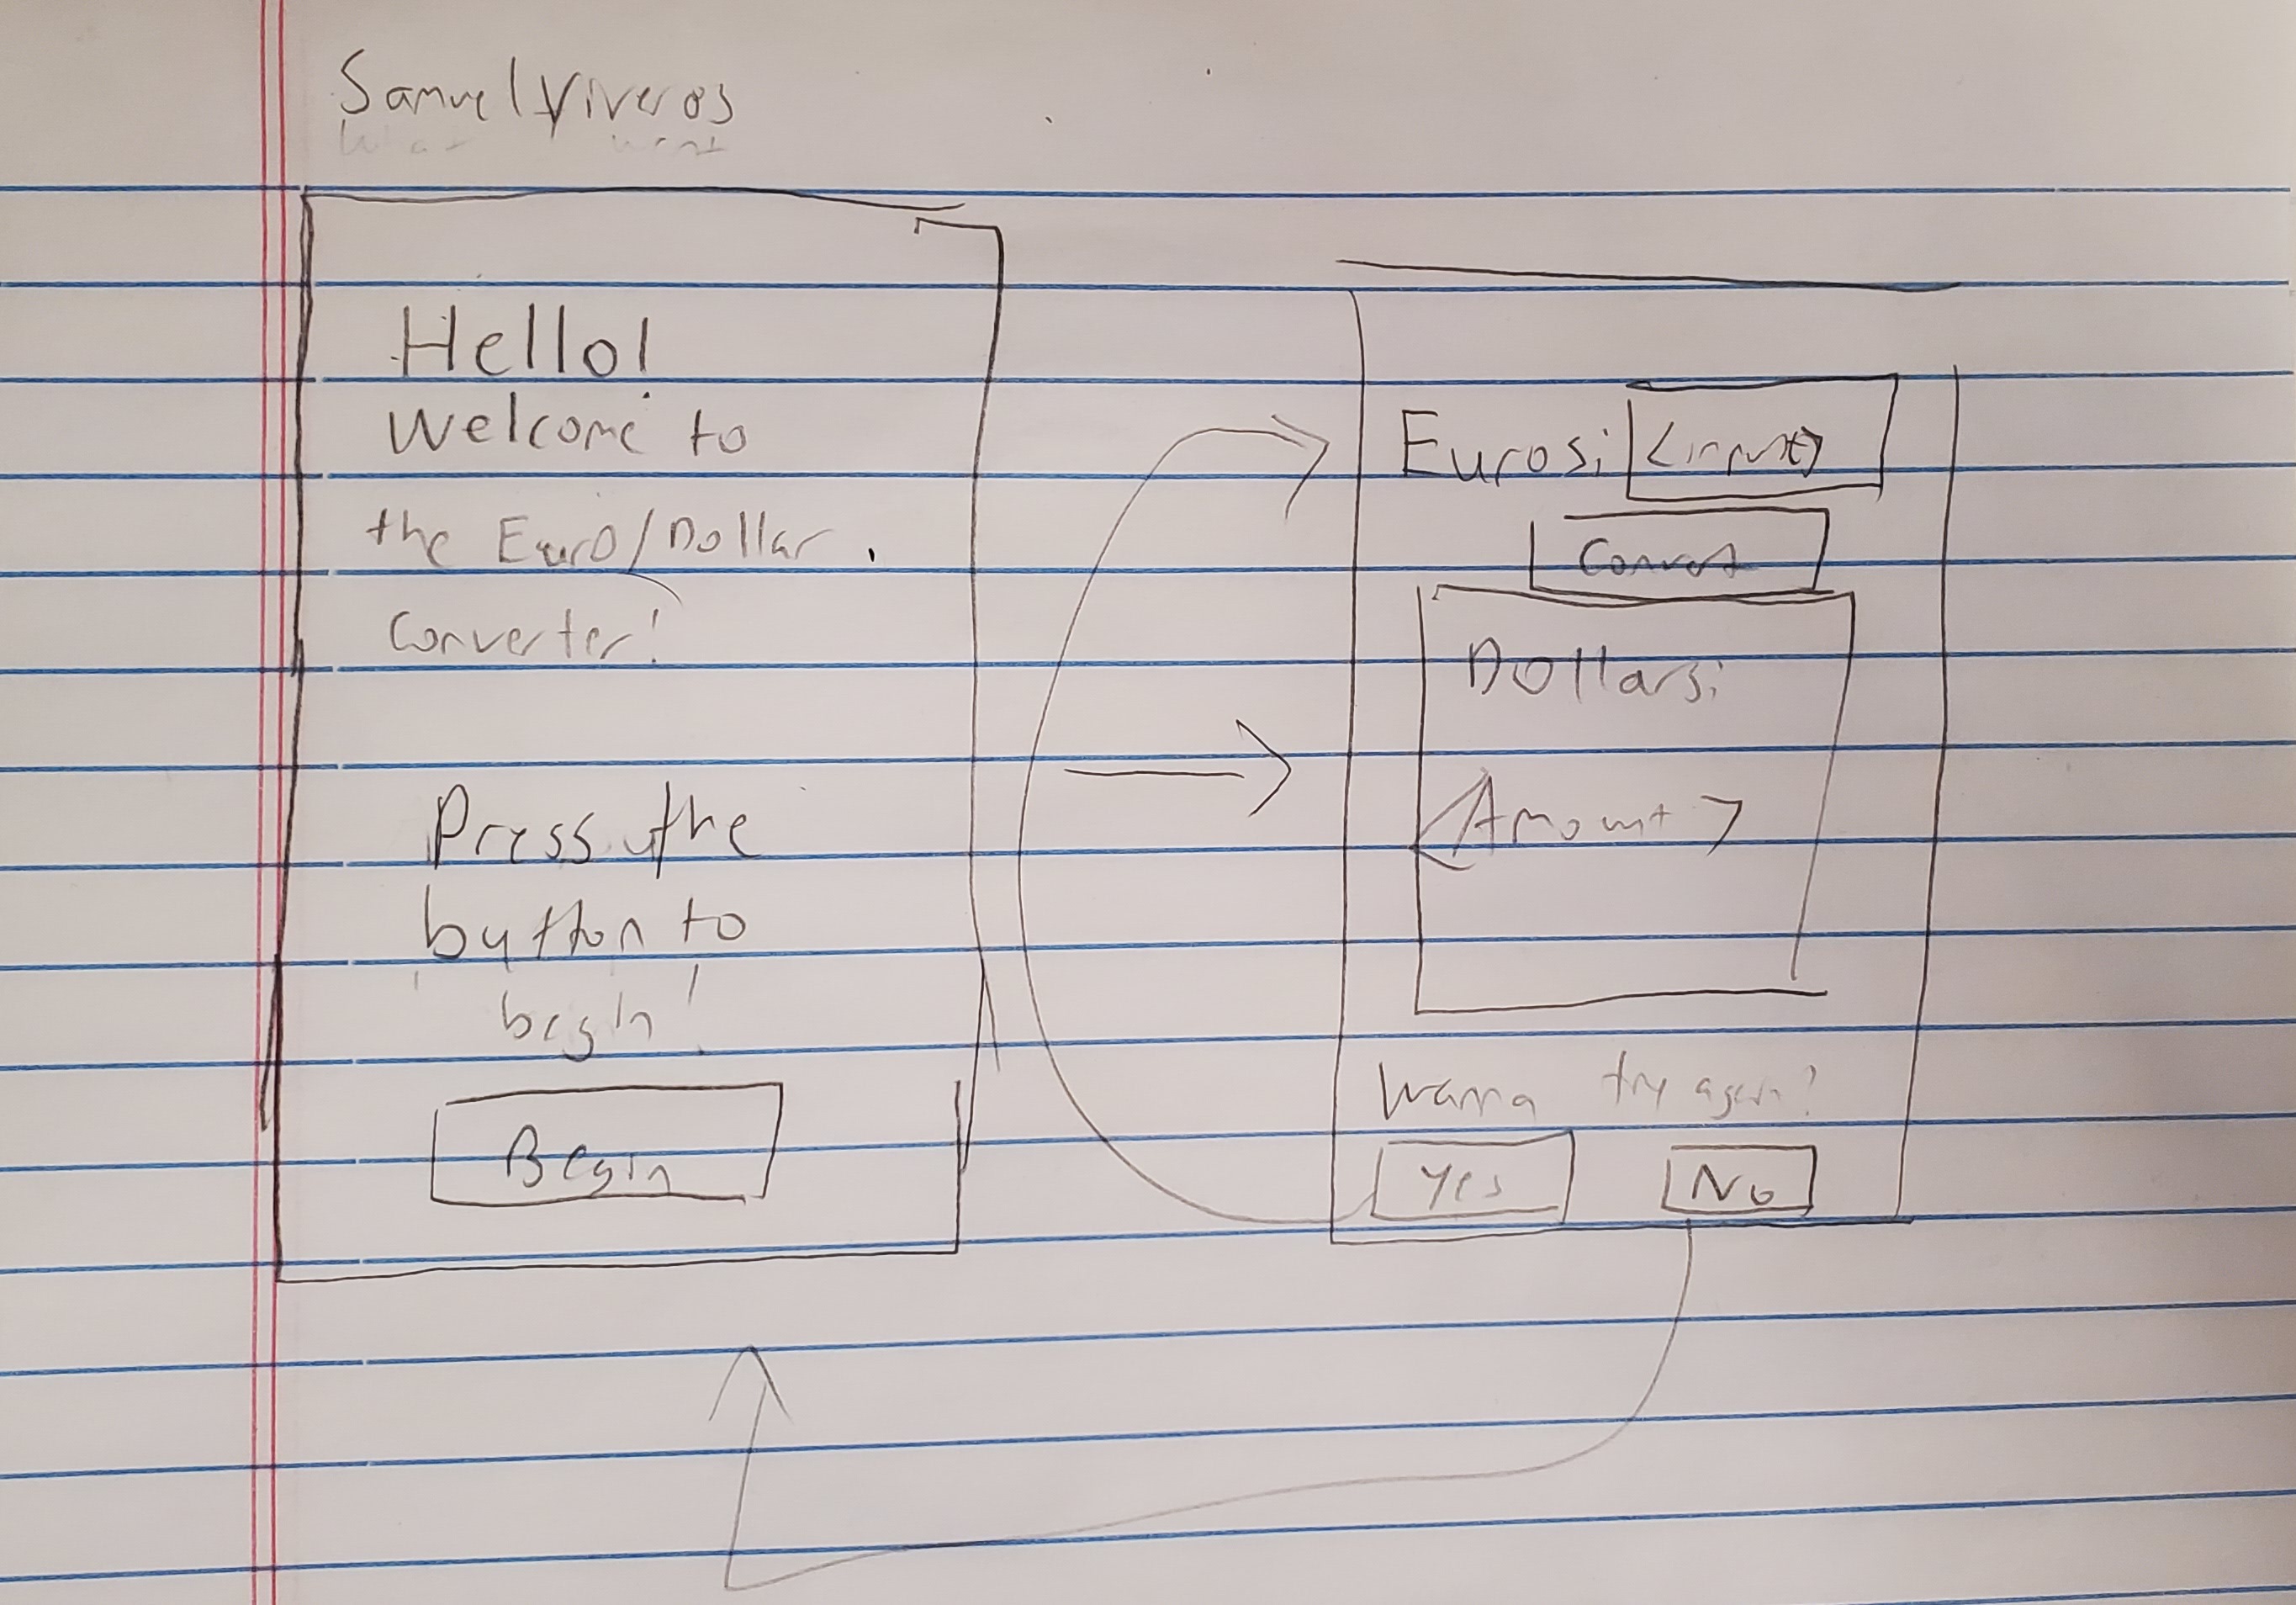 Samuel Viveros
Hello!
Welcome to
the Euro/Dollar
Converter!
Press the
button to
begin!
Begin
Euros: <input>
Convert
Dollars:
<Amount>
Wanna try again?
Yes No